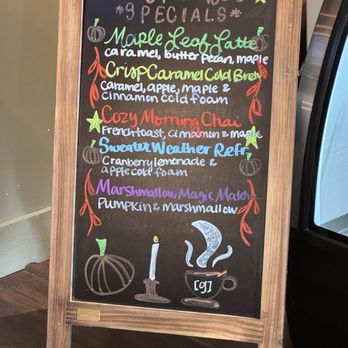 *SPECIALS*
Maple Leaf Latte
caramel, butter pecan, maple
Crisp Caramel Cold Brew
caramel, apple, maple &
cinnamon cold foam
Cozy Morning Chai
French toast, cinnamon & maple
Sweater Weather Refr.
Cranberry lemonade &
apple cold foam
Marshmallow Magic Matcha
Pumpkin & marshmallow
[g]